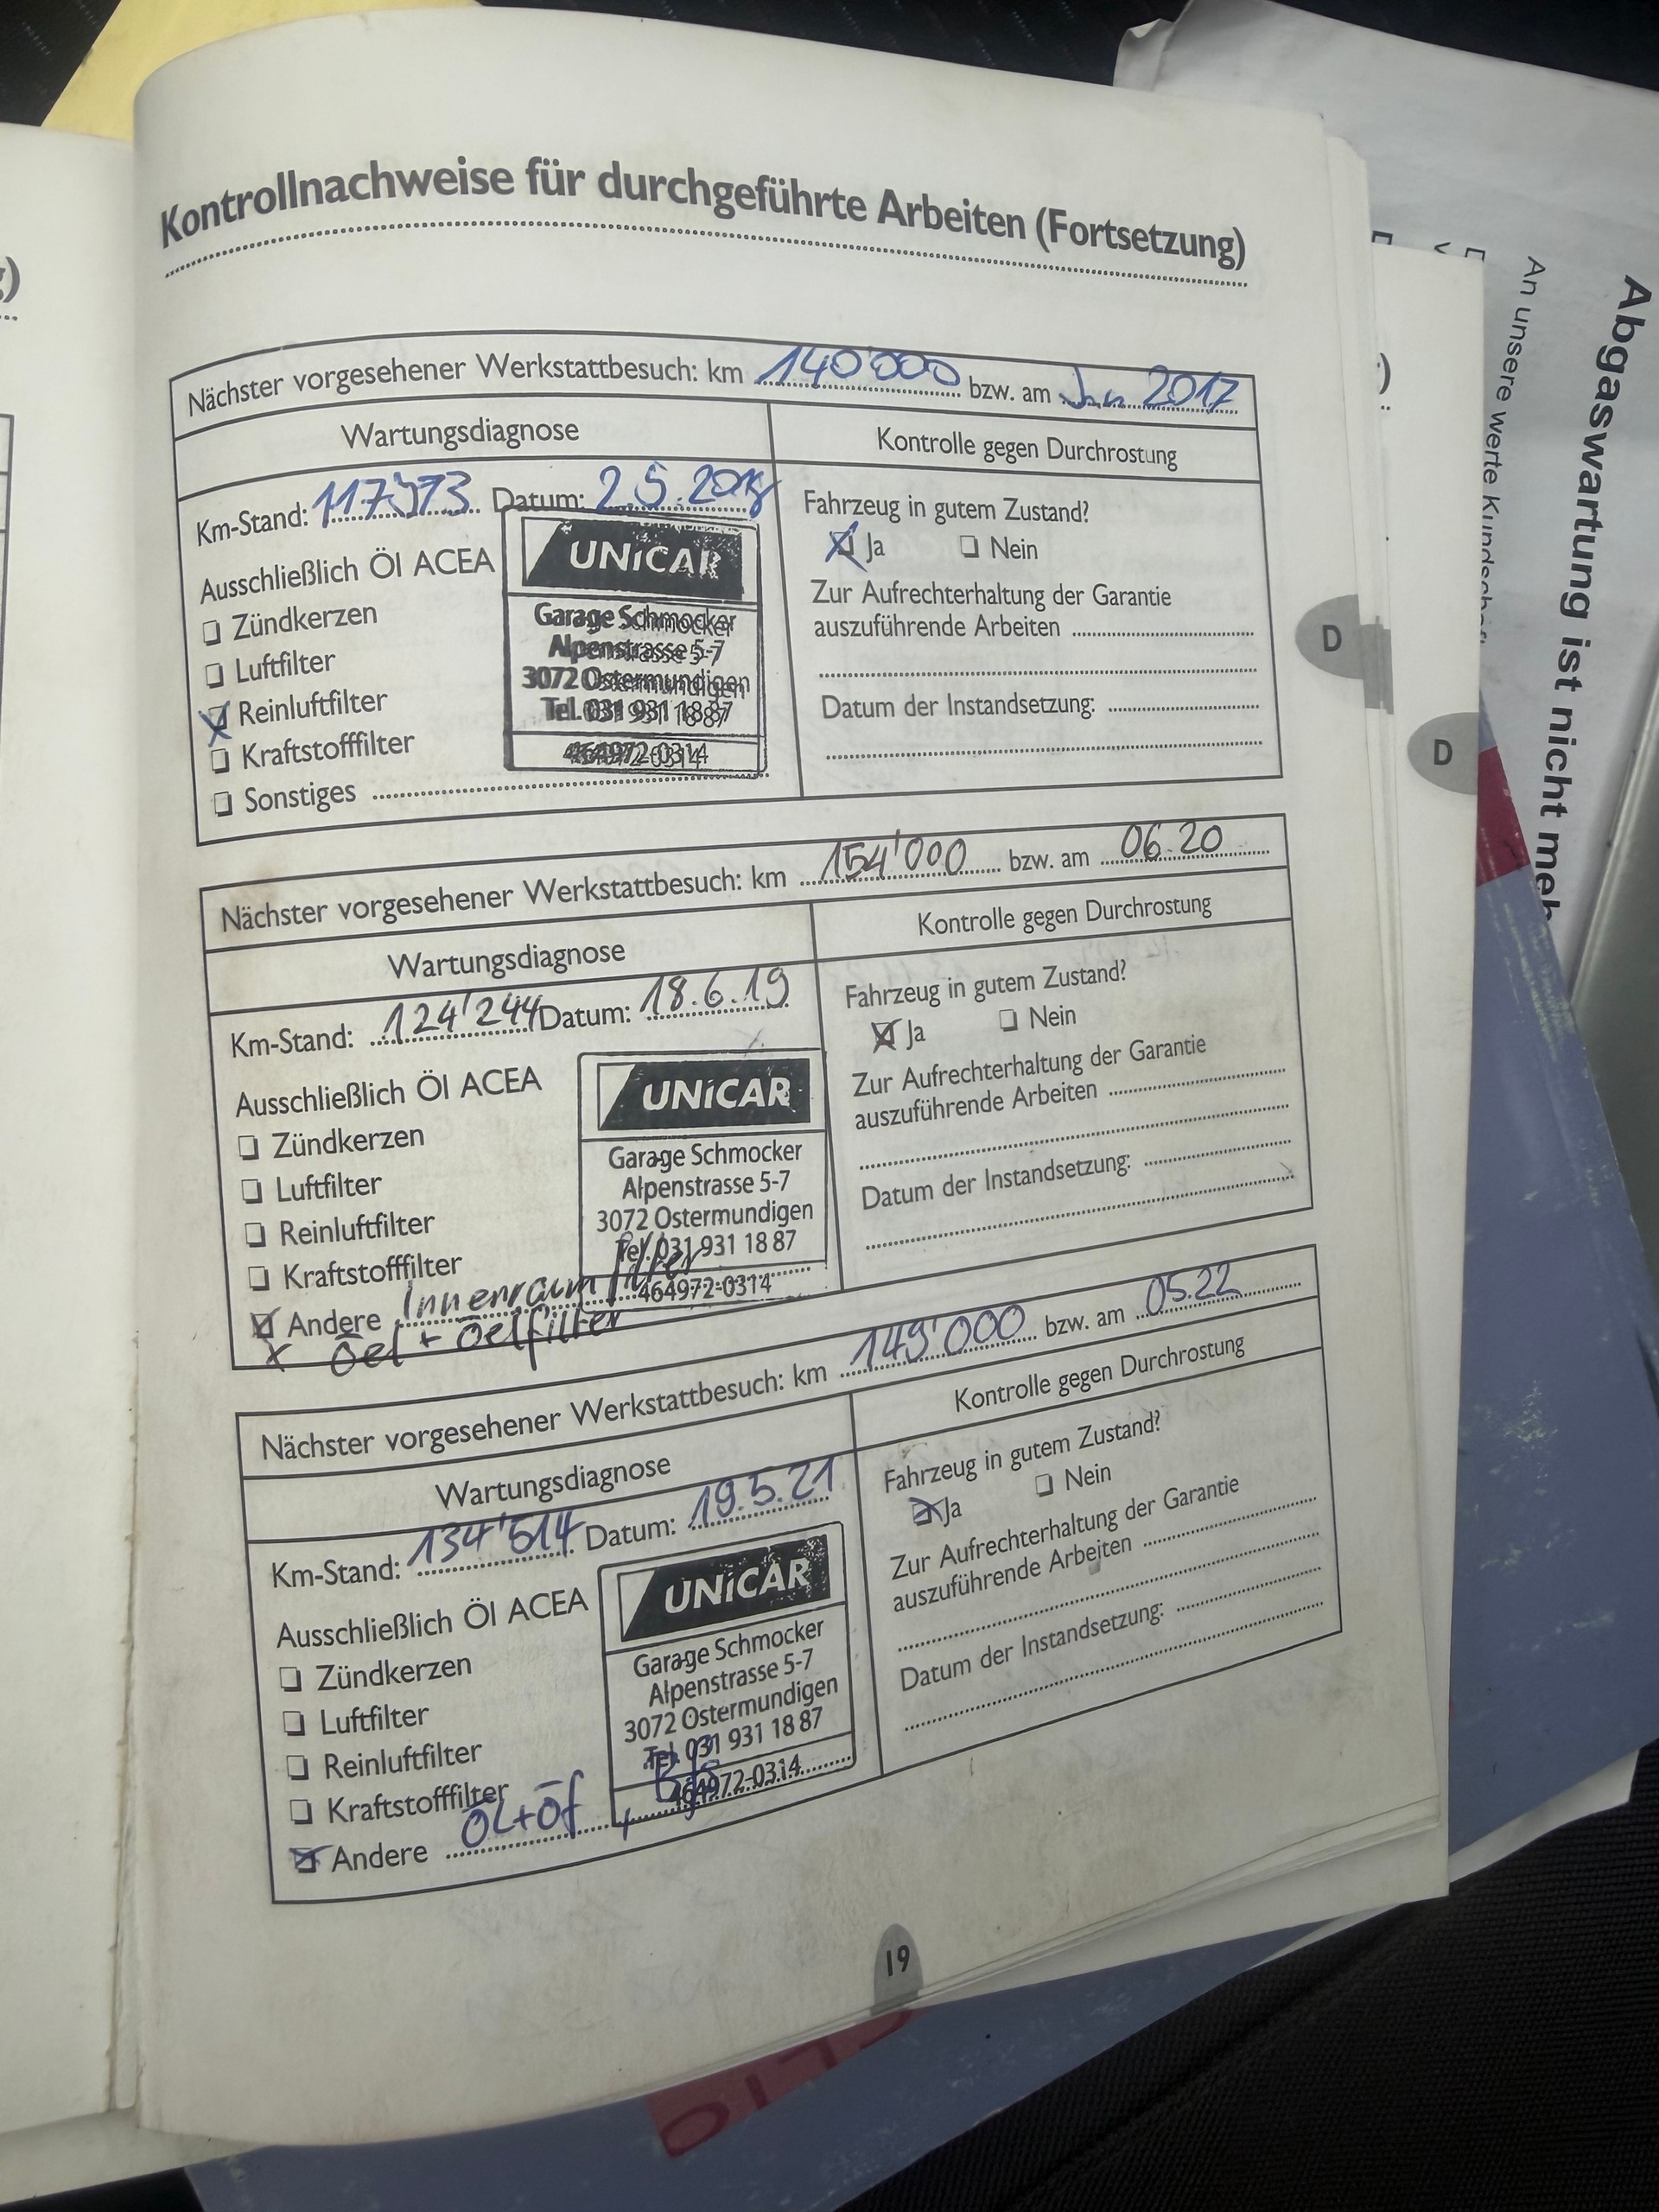 Kontrollnachweise für durchgeführte Arbeiten (Fortsetzung)
Nächster vorgesehener Werkstattbesuch: km 140'000 bzw. am 2017
Wartungsdiagnose
Kontrolle gegen Durchrostung
Km-Stand: Datum: 2.5.2018
Fahrzeug in gutem Zustand?
Ja Nein
Ausschließlich Öl ACEA
Zündkerzen
Luftfilter
Reinluftfilter
Kraftstofffilter
Sonstiges
UNiCAR
Garage Schmocker
Alpenstrasse 5-7
3072 Ostermundigen
Tel. 031 931 18 87
464972-0314
Zur Aufrechterhaltung der Garantie
auszuführende Arbeiten
Datum der Instandsetzung:
D
Nächster vorgesehener Werkstattbesuch: km 154'000 bzw. am 06.20
Wartungsdiagnose
Kontrolle gegen Durchrostung
Km-Stand: 124'244 Datum: 18.6.19
Fahrzeug in gutem Zustand?
Ja Nein
Ausschließlich Öl ACEA
Zündkerzen
Luftfilter
Reinluftfilter
Kraftstofffilter
Andere Innenraumfilter
x Oel + Oelfilter
UNiCAR
Garage Schmocker
Alpenstrasse 5-7
3072 Ostermundigen
Tel. 031 931 18 87
464972-0314
Zur Aufrechterhaltung der Garantie
auszuführende Arbeiten
Datum der Instandsetzung:
Nächster vorgesehener Werkstattbesuch: km 149'000 bzw. am 05.22
Wartungsdiagnose
Kontrolle gegen Durchrostung
Km-Stand: 134'514 Datum: 19.5.21
Fahrzeug in gutem Zustand?
Ja Nein
Ausschließlich Öl ACEA
Zündkerzen
Luftfilter
Reinluftfilter
Kraftstofffilter
Andere ÖL+ÖF,
UNiCAR
Garage Schmocker
Alpenstrasse 5-7
3072 Ostermundigen
Tel. 031 931 18 87
464972-0314
Zur Aufrechterhaltung der Garantie
auszuführende Arbeiten
Datum der Instandsetzung:
19
D
Abgaswartung ist nicht meh
An unsere werte Kundschaft